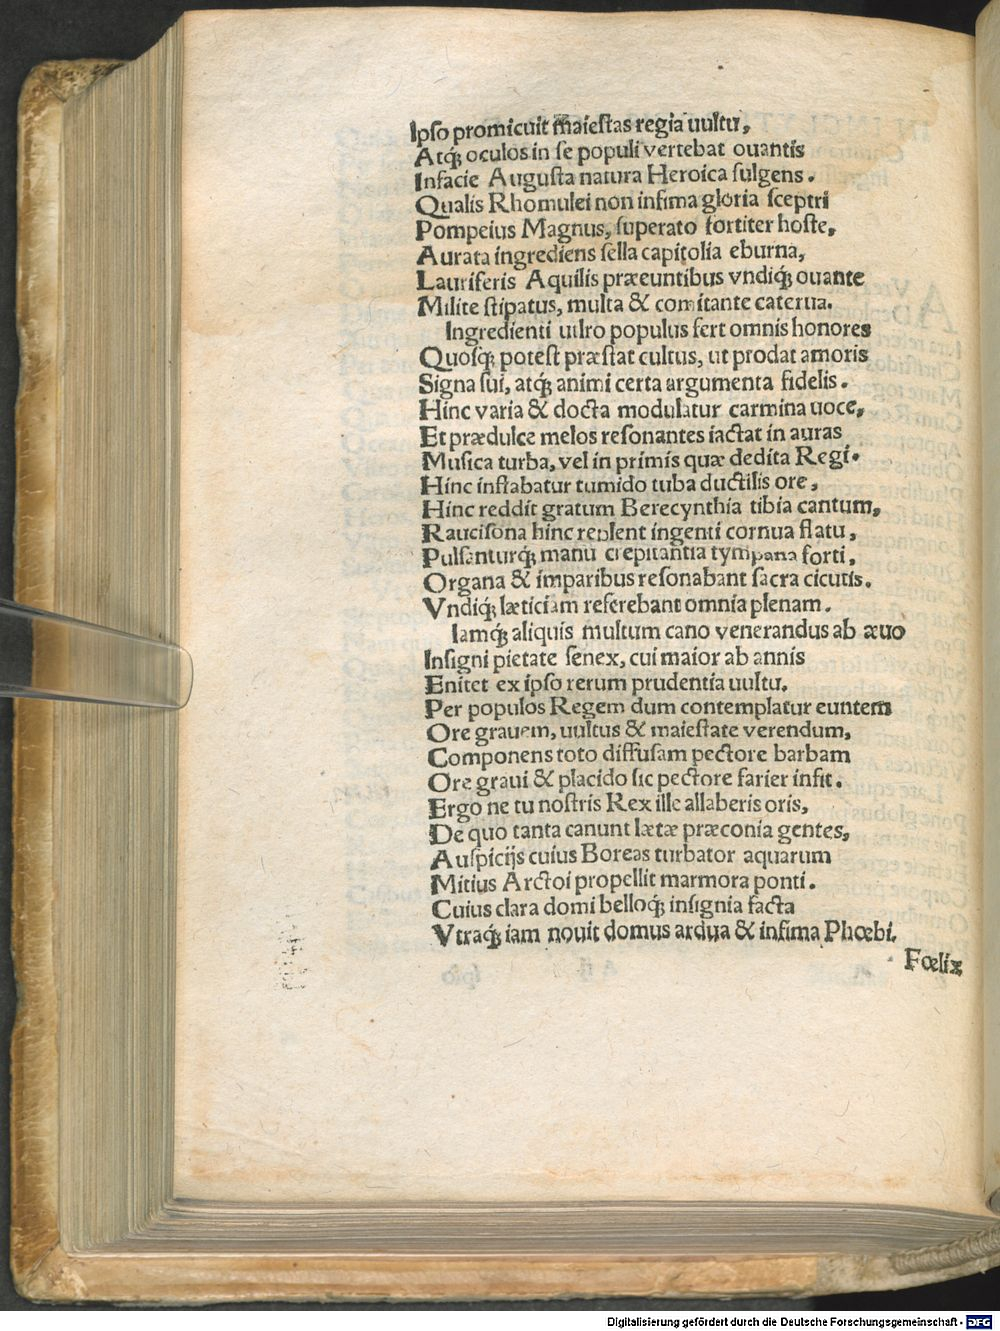 Ipso promicuit maiestas regia uultu,
Atq́; oculos in se populi vertebat ouantis
Infacie Augusta natura Heroica fulgens.
Qualis Rhomulei non infima gloria sceptri
Pompeius Magnus, superato fortiter hoste,
Aurata ingrediens sella capitolia eburna,
Lauriferis Aquilis præeuntibus vndiq́; ouante
Milite stipatus, multa & comitante caterua.
Ingredienti ultro populus fert omnis honores
Quosq́; potest præstat cultus, ut prodat amoris
Signa sui, atq́; animi certa argumenta fidelis.
Hinc varia & docta modulatur carmina uoce,
Et prædulce melos resonantes iactat in auras
Musica turba, vel in primis quæ dedita Regi.
Hinc inflabatur tumido tuba ductilis ore,
Hinc reddit gratum Berecynthia tibia cantum,
Raucisona hinc replent ingenti cornua flatu,
Pulsanturq́; manu crepitantia tympana forti,
Organa & imparibus resonabant sacra cicutis.
Vndiq́; læticiam referebant omnia plenam.
Iamq́; aliquis multum cano venerandus ab æuo
Insigni pietate senex, cui maior ab annis
Enitet ex ipso rerum prudentia uultu.
Per populos Regem dum contemplatur euntem
Ore grauem, uultus & maiestate verendum,
Componens toto diffusam pectore barbam
Ore graui & placido sic pectore farier infit.
Ergo ne tu nostris Rex ille allaberis oris,
De quo tanta canunt lætæ præconia gentes,
Auspicijs cuius Boreas turbator aquarum
Mitius Arctoi propellit marmora ponti.
Cuius clara domi belloq́; insignia facta
Vtraq́; iam nouit domus ardua & infima Phœbi.
Fœlix
Digitalisierung gefördert durch die Deutsche Forschungsgemeinschaft - DFG